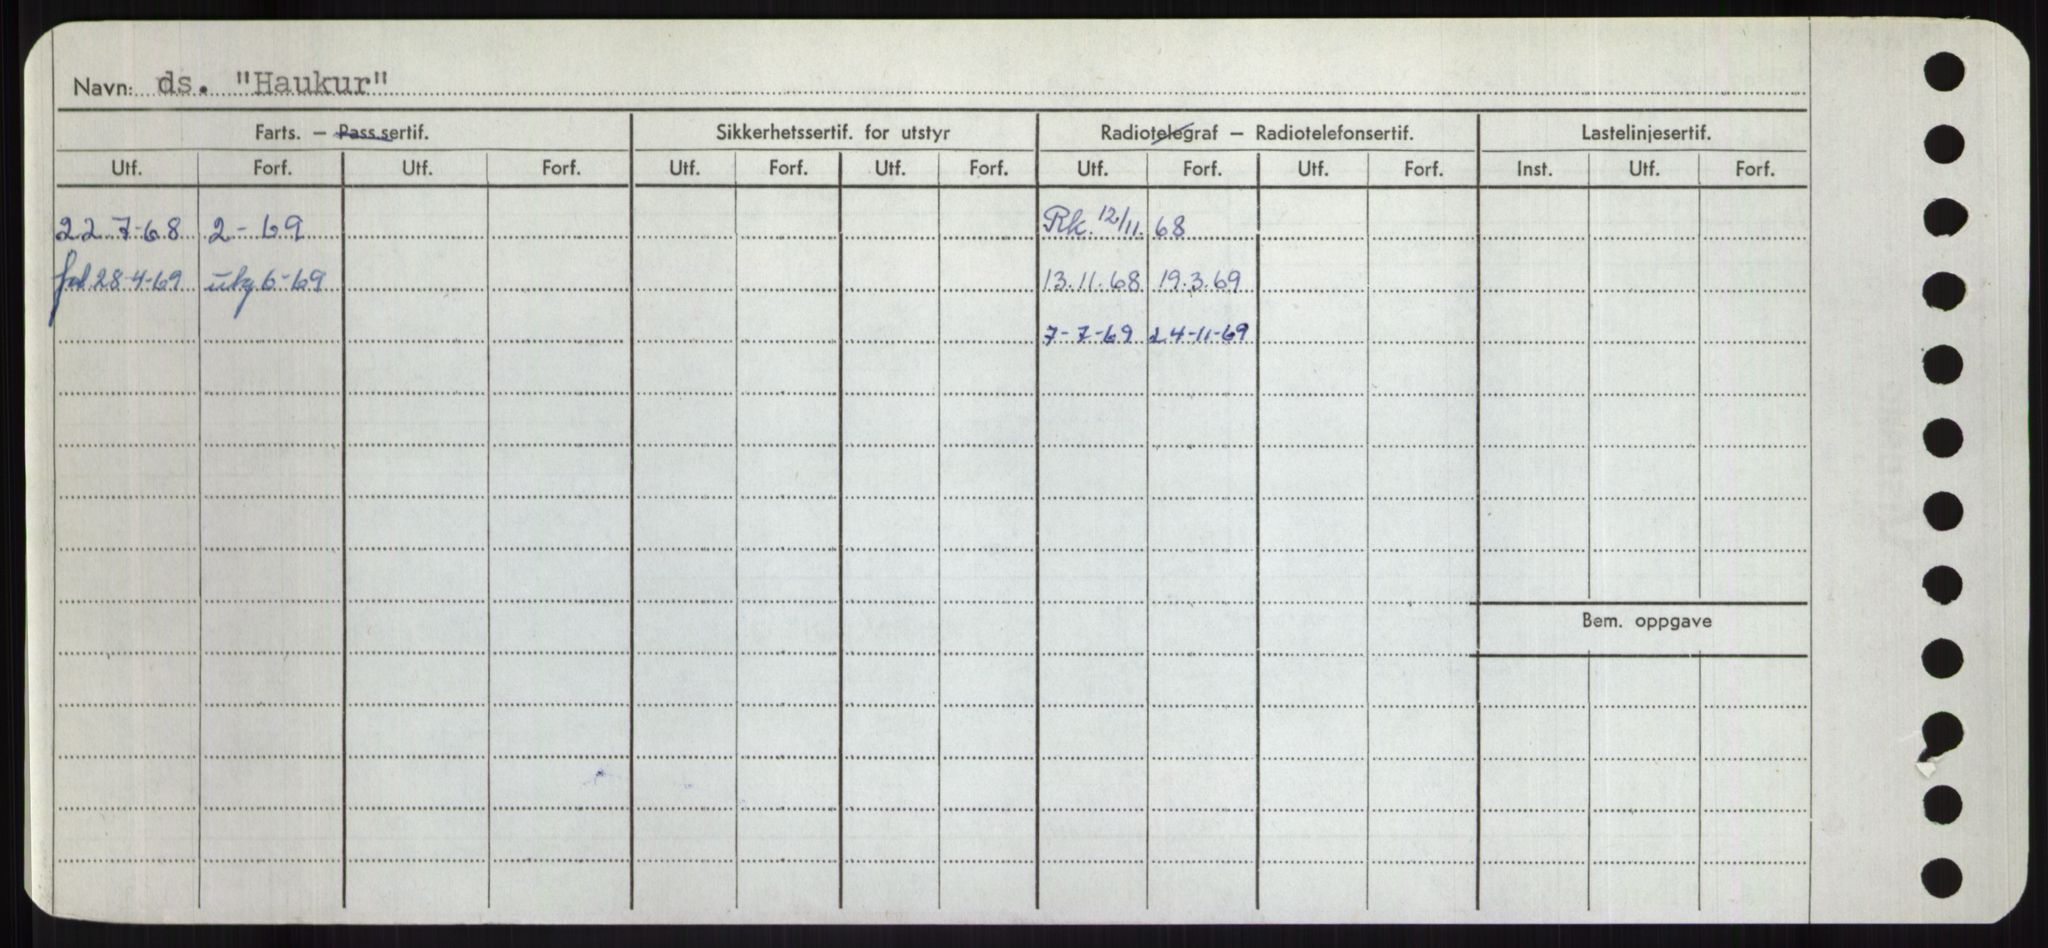 Navn: ds. "Haukur"
Farts. – Pass.sertif. Sikkerhetssertif. for utstyr Radiotelegraf – Radiotelefonsertif. Lastelinjesertif.
Utf. Forf. Utf. Forf. Utf. Forf. Utf. Forf. Utf. Forf. Utf. Forf. Inst. Utf. Forf.
22 7-68 2-69 Rk. 12/11. 68
28-4-69 6-69 13.11.68 19.3.69
7-7-69 24-11-69
Bem. oppgave